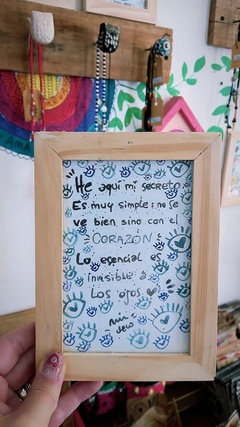 "He aquí mi secreto.
Es muy simple: no se
ve bien sino con el
CORAZÓN
Lo esencial es
invisible a
Los ojos